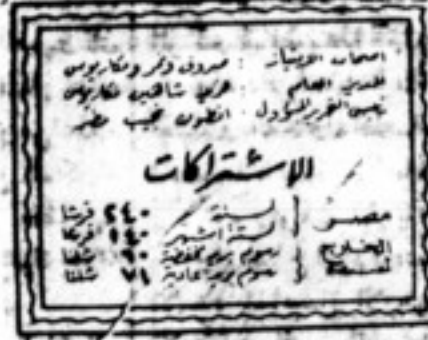 اصحاب الامتياز : صروف ونمر ومكاريوس
المدير العام : شاهين مكاريوس
رئيس التحرير المسؤول : انطون نجيب مطر
الاشتراكات
مصر سنة ٢٤٠ قرشا
لستة اشهر ١٤٠ قرشا
الخارج رسوم بريد مخفضة ٩٠ شلنا
لسنة رسوم بريد عادية ٧١ شلنا